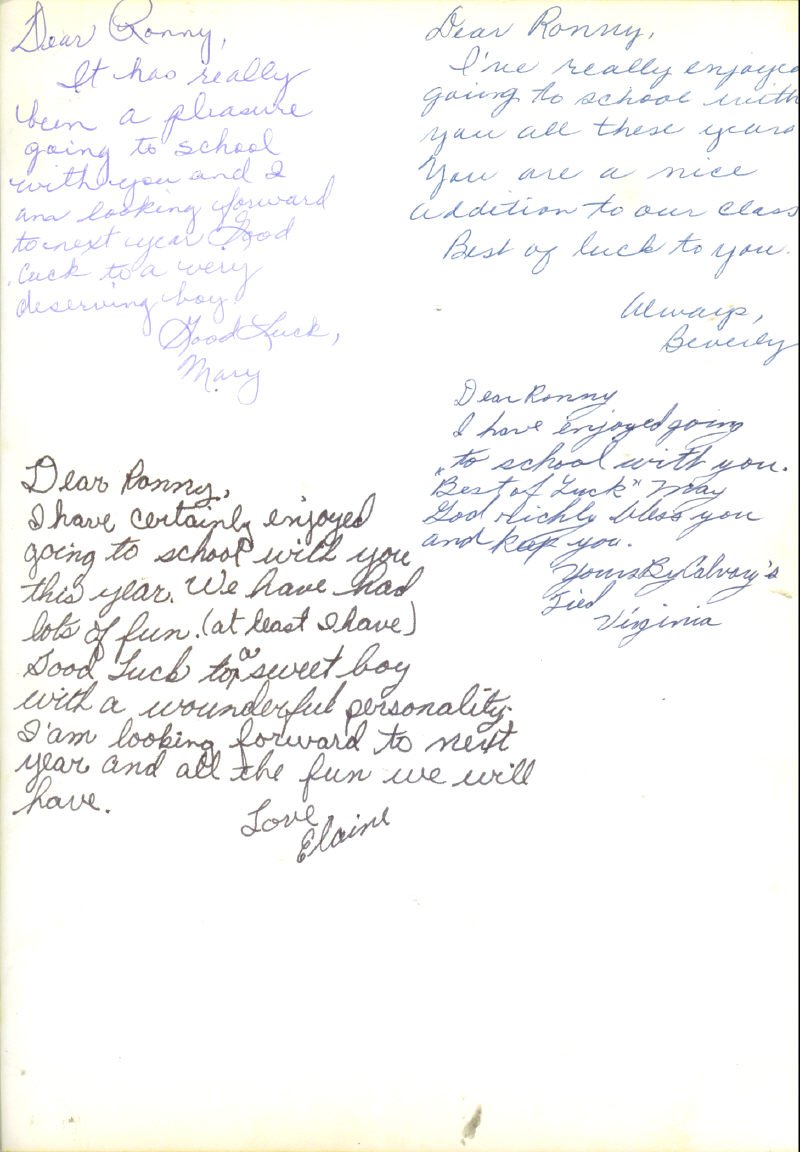 Dear Ronny,
It has really
been a pleasure
going to school
with you and I
am looking forward
to next year Good
Luck to a very
deserving boy
Good Luck,
Mary
Dear Ronny,
I've really enjoyed
going to school with
you all these years
You are a nice
addition to our class
Best of luck to you.
Always,
Beverly
Dear Ronny
I have enjoyed going
to school with you.
Best of Luck" May
God richly bless you
and keep you.
Yours By Calvary's
Tied
Virginia
Dear Ronny,
I have certainly enjoyed
going to school with you
this year. We have had
lots of fun. (at least I have)
Good Luck to a sweet boy
with a wounderful personality.
I'am looking forward to next
year and all the fun we will
have.
Love
Elaine